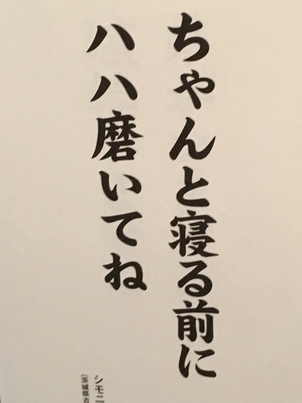 ちゃんと寝る前に
ハハ磨いてね
シモニ